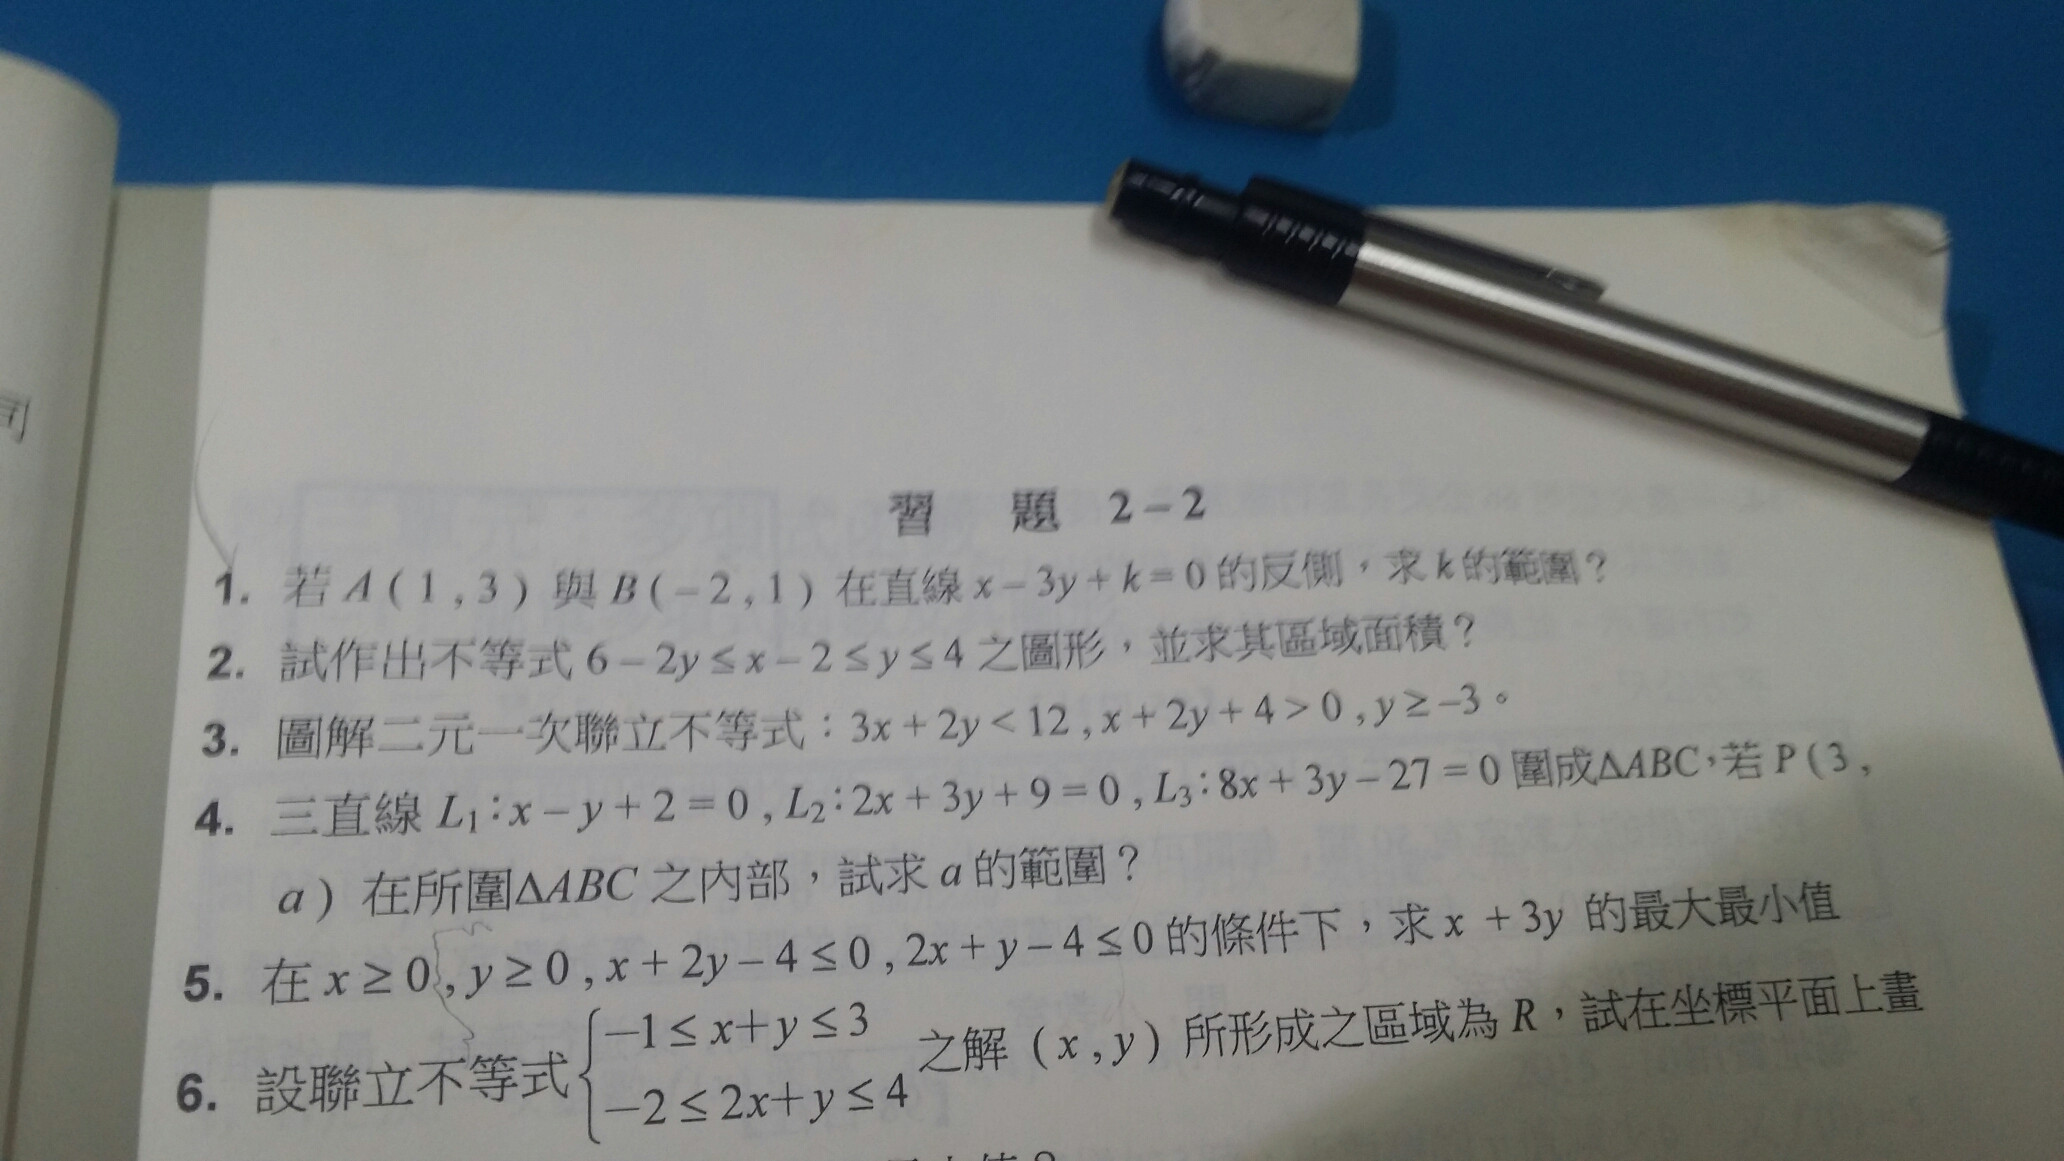 司
習 題 2-2
1. 若 A(1,3) 與 B(-2,1) 在直線 x-3y+k=0 的反側,求 k 的範圍?
2. 試作出不等式 6-2y≤x-2≤y≤4 之圖形,並求其區域面積?
3. 圖解二元一次聯立不等式:3x+2y<12,x+2y+4>0,y≥-3。
4. 三直線 L₁:x-y+2=0,L₂:2x+3y+9=0,L₃:8x+3y-27=0 圍成ΔABC,若 P(3,
a) 在所圍ΔABC 之內部,試求 a 的範圍?
5. 在 x≥0,y≥0,x+2y-4≤0,2x+y-4≤0 的條件下,求 x+3y 的最大最小值
-1≤x+y≤3
6. 設聯立不等式 之解 (x,y) 所形成之區域為 R,試在坐標平面上畫
-2≤2x+y≤4